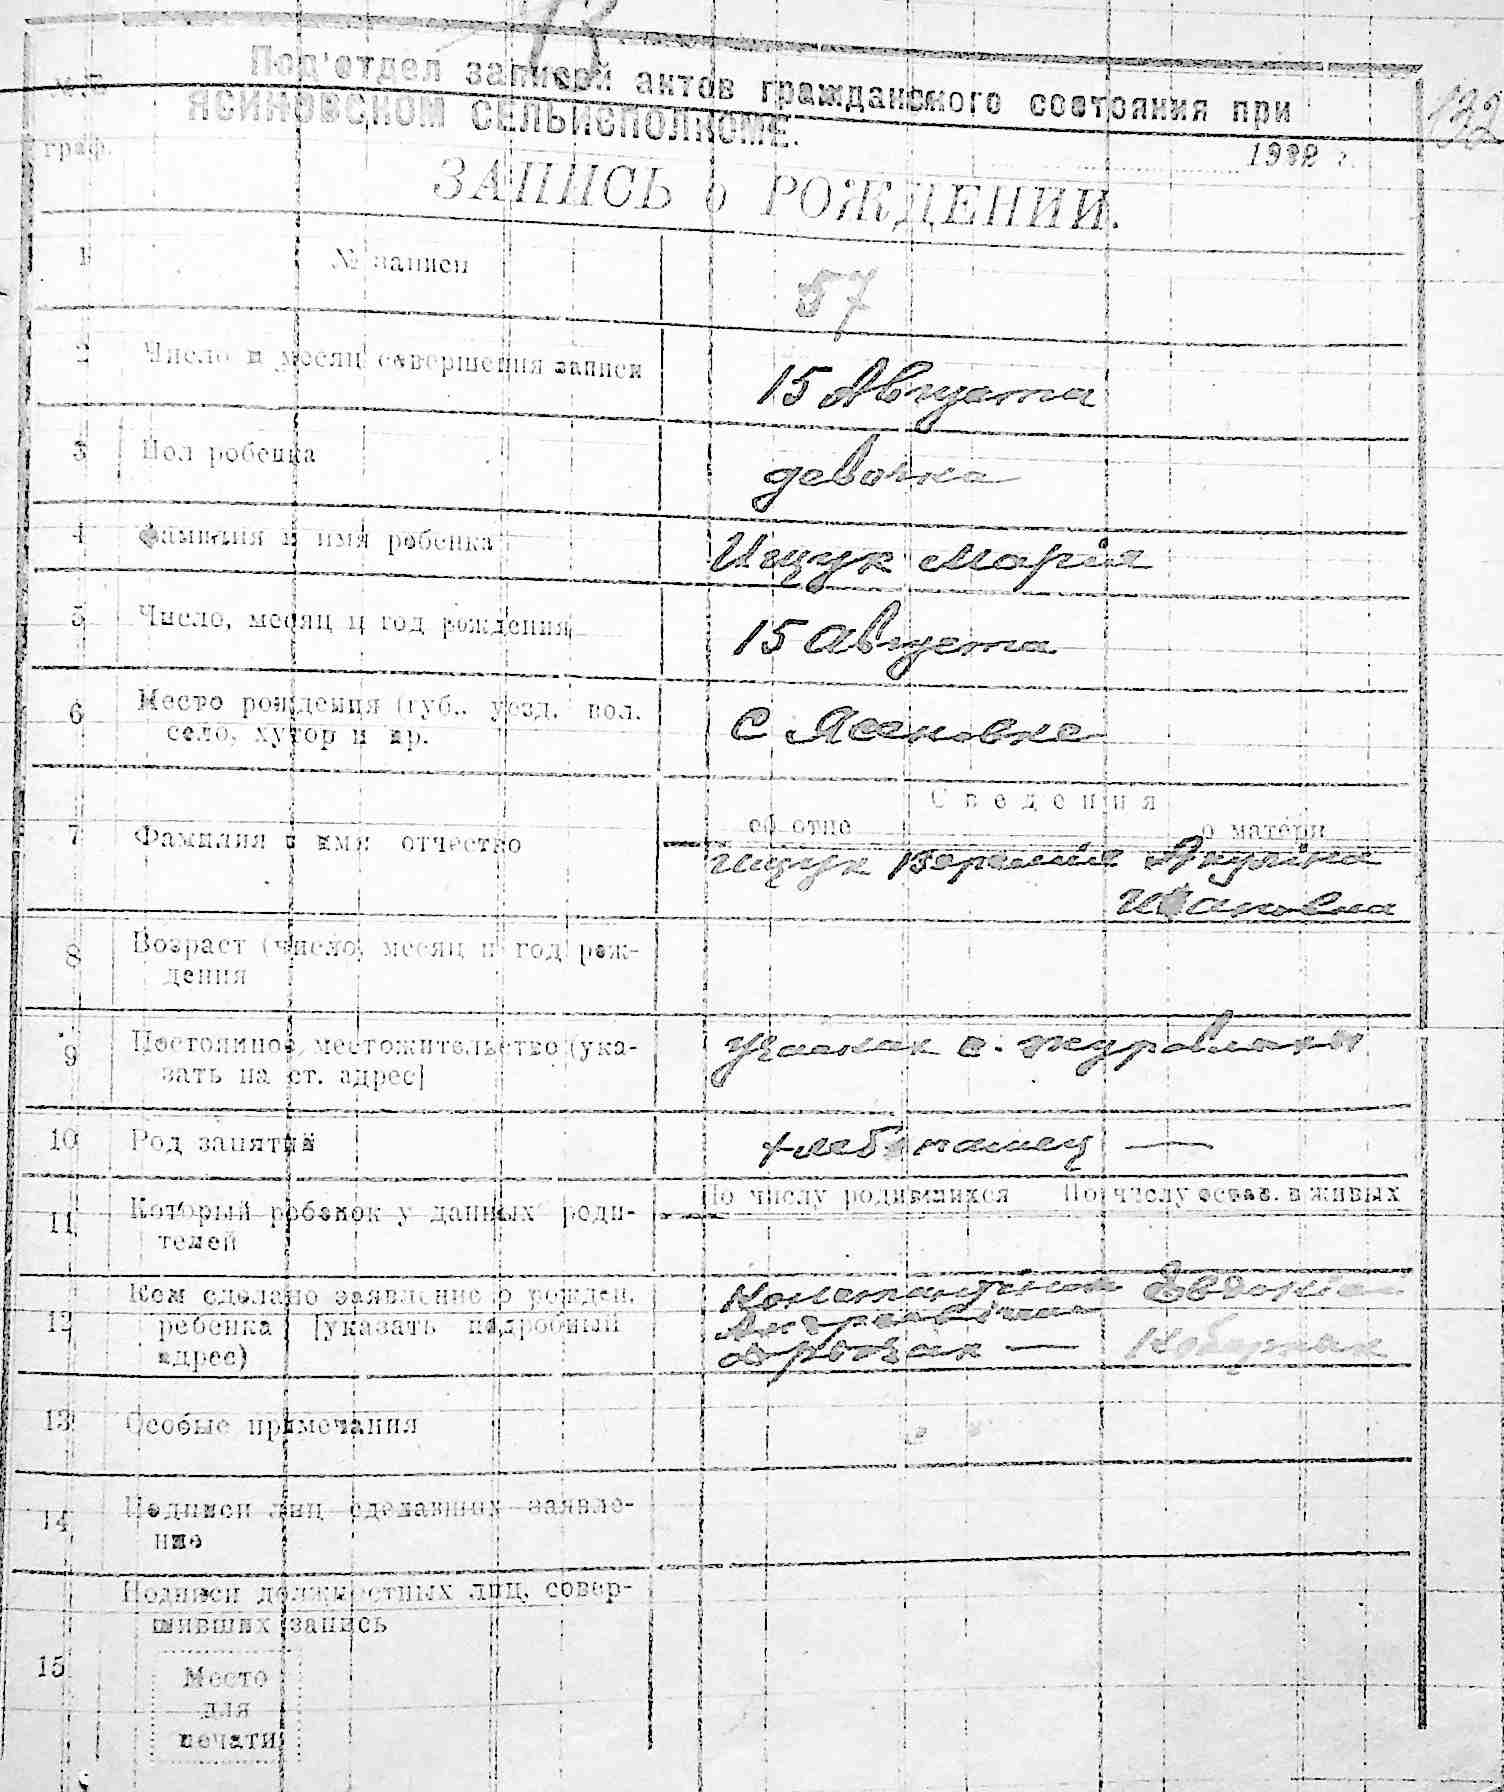 132
Под'отдел записей актов гражданского состояния при
ЯСИНОВСКОМ СЕЛЬИСПОЛКОМЕ.
№№
граф.
1922 г.
ЗАПИСЬ о РОЖДЕНИИ.
1 № записи 57
2 Число и месяц совершения записи 15 Августа
3 Пол ребенка девочка
4 Фамилия и имя ребенка Ищук Марія
5 Число, месяц и год рождения 15 августа
6 Место рождения (губ., уезд. вол. с Ясеновке
село, хутор и пр.
Сведения
об отце о матери
7 Фамилия и имя отчество Ищук Акуліна
Ивановна
8 Возраст (число, месяц и год рож-
дения
9 Постоянное местожительство (ука-
зать на ст. адрес]
10 Род занятий хлебопашец —
По числу родившихся По числу остав. в живых
11 Который ребенок у данных роди-
телей
12 Кем сделано заявление о рожден. Константин Евдокіа
ребенка [указать подробный
адрес) —
13 Особые примечания
14 Подписи лиц сделавших заявле-
ние
Подписи должностных лиц, совер-
шивших запись
15
Место
для
печати